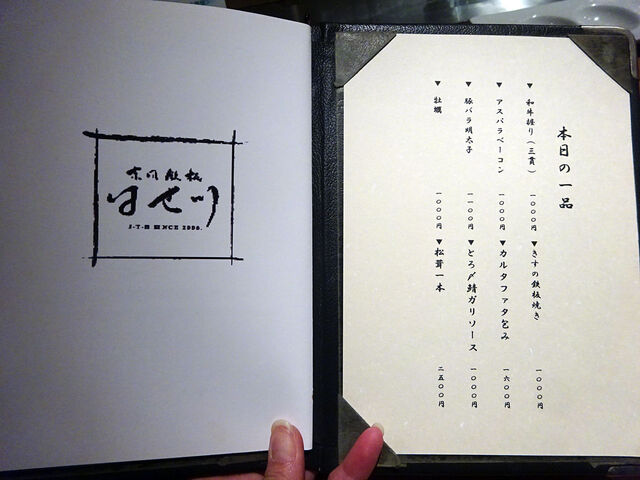 はせ川
本日の一品
▼和牛握り(三貫) 一〇〇〇円
▼アスパラベーコン 一〇〇〇円
▼豚バラ明太子 一一〇〇円
▼牡蠣 一〇〇〇円
▼きすの鉄板焼き 一〇〇〇円
▼カルタファタ包み 一六〇〇円
▼とろ〆鯖ガリソース 一〇〇〇円
▼松茸一本 二五〇〇円